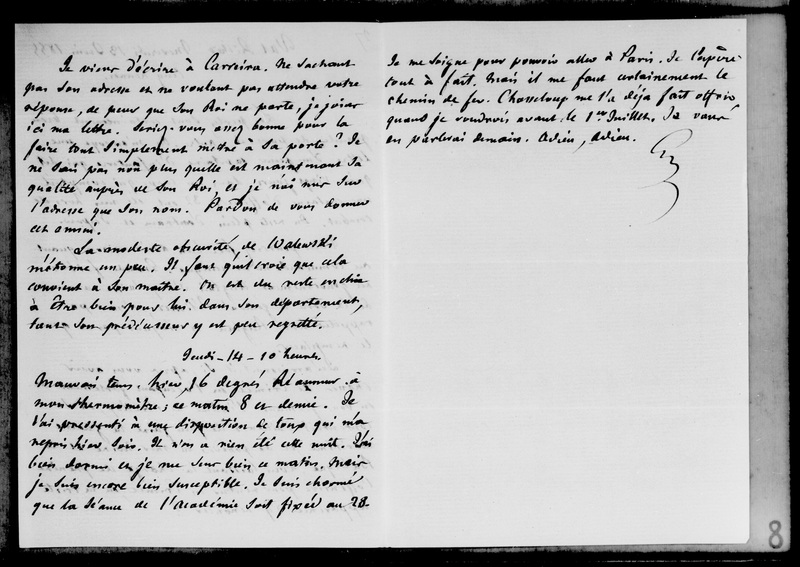 Je viens d'écrire à Carreira. Ne sachant
pas son adresse et ne voulant pas attendre votre
réponse, de peur que son Roi ne parte, je joins
ici ma lettre. Seriez-vous assez bonne pour la
faire tout simplement mettre à sa porte ? Je
ne sais pas non plus quelle est maintenant sa
qualité auprès de son Roi, et je n'ai mis sur
l'adresse que son nom. Pardon de vous donner
cet ennui.
La modeste obscurité de Walewski
m'étonne un peu. Il faut qu'il croie que cela
convient à son maître. On est du reste enclin
à être bien pour lui dans son département,
tant son prédécesseur y est peu regretté.
Jeudi - 14 - 10 heures
Mauvais tems. hier, 16 degrés Réaumur à
mon thermomètre ; ce matin 8 et demie. Je
l'ai pressenti à une disposition de toux qui m'a
repris hier soir. Il n'en a rien été cette nuit. J'ai
bien dormi et je me sens bien ce matin. Mais
je suis encore bien susceptible. Je suis charmé
que la séance de l'Académie soit fixée au 28.
Je me soigne pour pouvoir aller à Paris. Je l'espère
tout à fait. Mais il me faut certainement le
chemin de fer. Chasseloup me l'a déjà fait offrir,
quand je voudrois avant le 1er Juillet. Je vous
en parlerai demain. Adieu, Adieu.
G
8